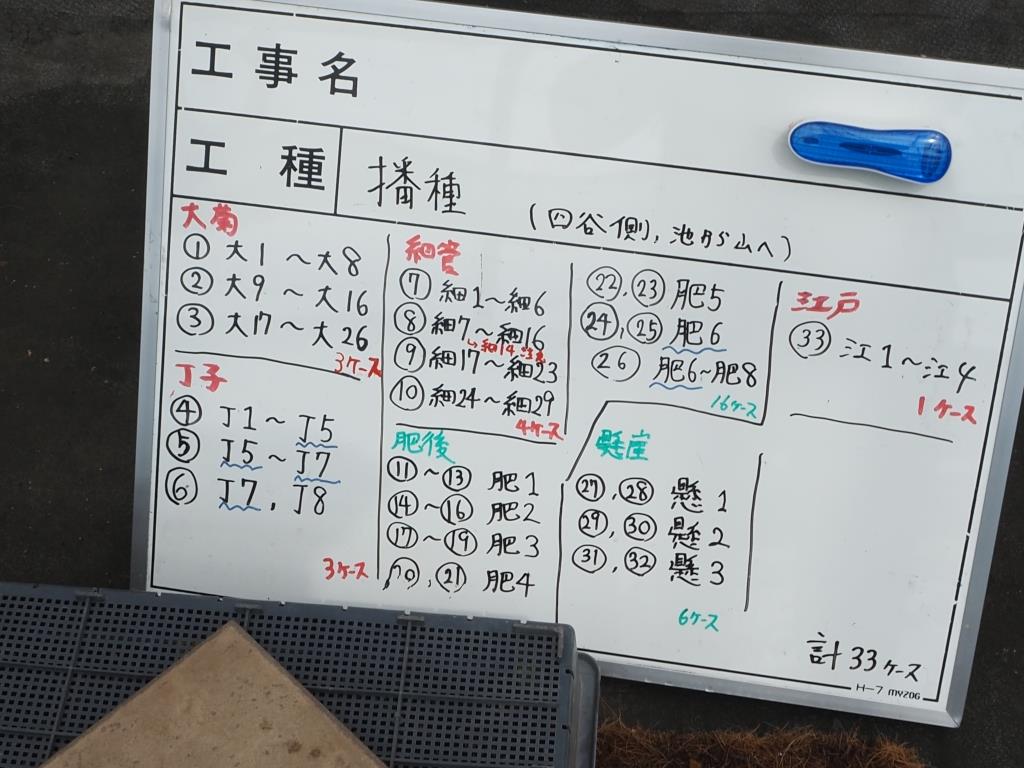 工事名
工種
播種
(四谷側, 池から山へ)
大菊
① 大1 〜大8
② 大9 〜大16
③ 大17 〜大26
3ケース
丁子
④ 丁1〜丁5
⑤ 丁5〜丁7
⑥ 丁7, 丁8
3ケース
細管
⑦ 細1〜細6
⑧ 細7〜細16
↳細14 注意
⑨ 細17〜細23
⑩ 細24〜細29
4ケース
肥後
⑪〜⑬ 肥1
⑭〜⑯ 肥2
⑰〜⑲ 肥3
⑳, ㉑ 肥4
㉒, ㉓ 肥5
㉔, ㉕ 肥6
㉖ 肥6〜肥8
16ケース
懸崖
㉗, ㉘ 懸1
㉙, ㉚ 懸2
㉛, ㉜ 懸3
6ケース
江戸
㉝ 江1〜江4
1ケース
計33ケース
H-7 MYZOG